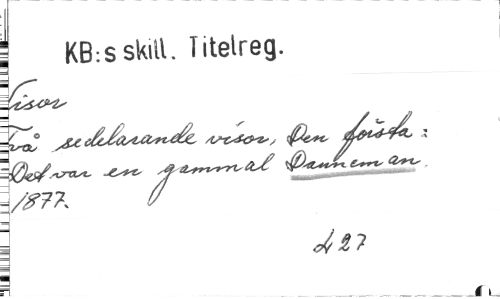 KB:s skill. Titelreg.
Visor
Två sedelärande visor, Den första:
Det var en gammal Danneman.
1877.
427